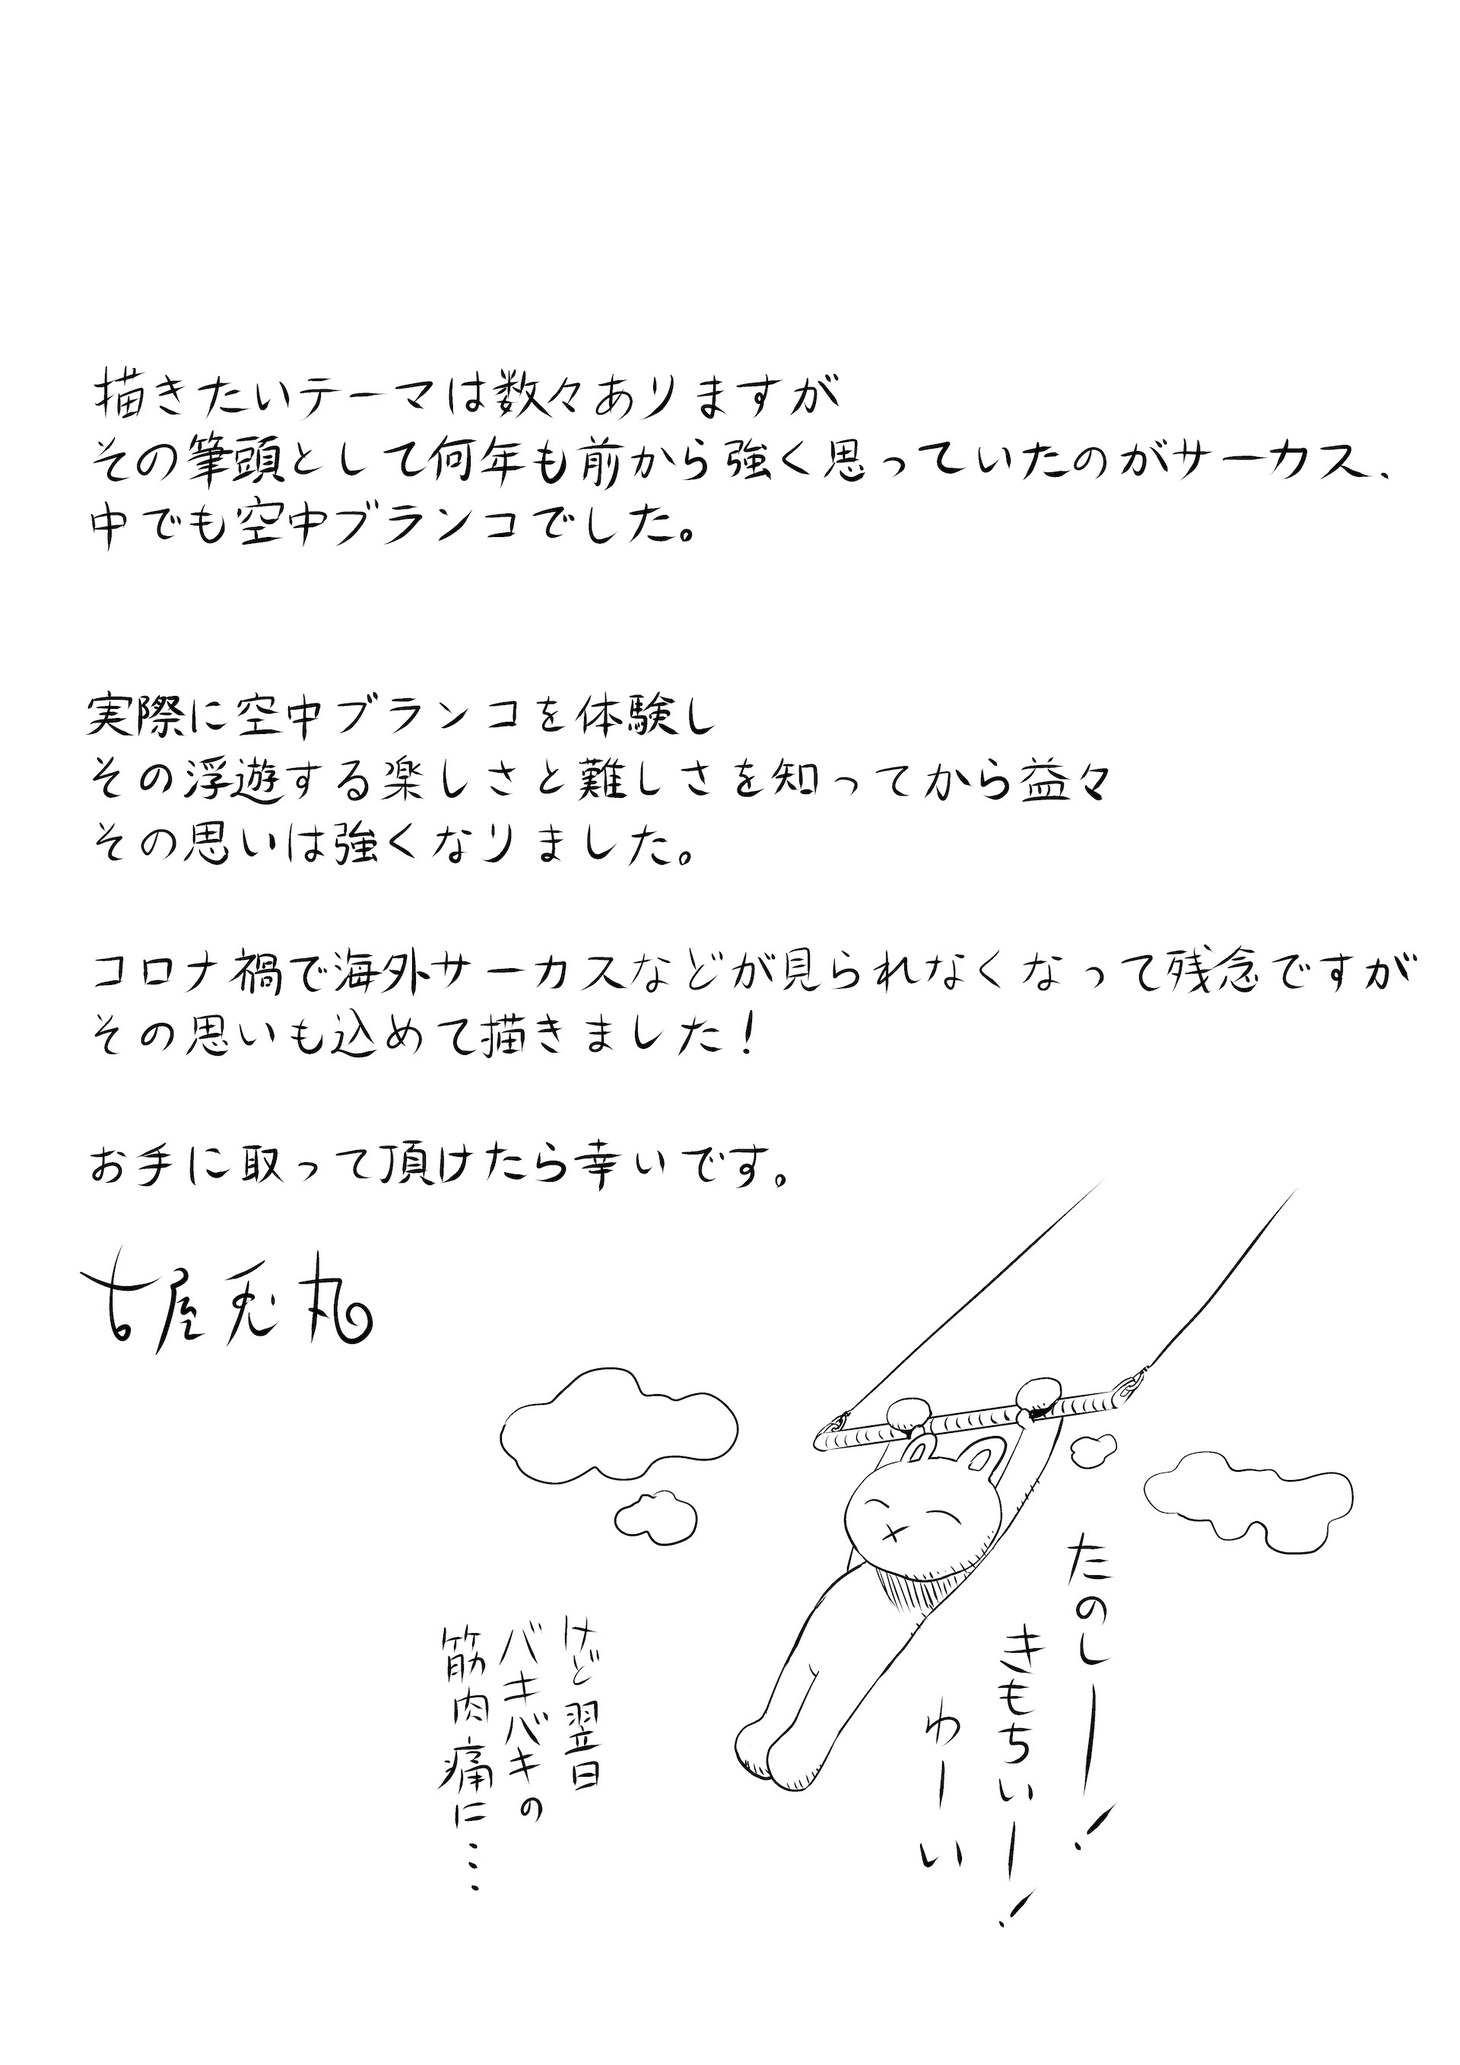 描きたいテーマは数々ありますが
その筆頭として何年も前から強く思っていたのがサーカス、
中でも空中ブランコでした。
実際に空中ブランコを体験し
その浮遊する楽しさと難しさを知ってから益々
その思いは強くなりました。
コロナ禍で海外サーカスなどが見られなくなって残念ですが
その思いも込めて描きました！
お手に取って頂けたら幸いです。
古屋兎丸
たのしー！
きもちいー！
わーい
けど翌日
バキバキの
筋肉痛に…